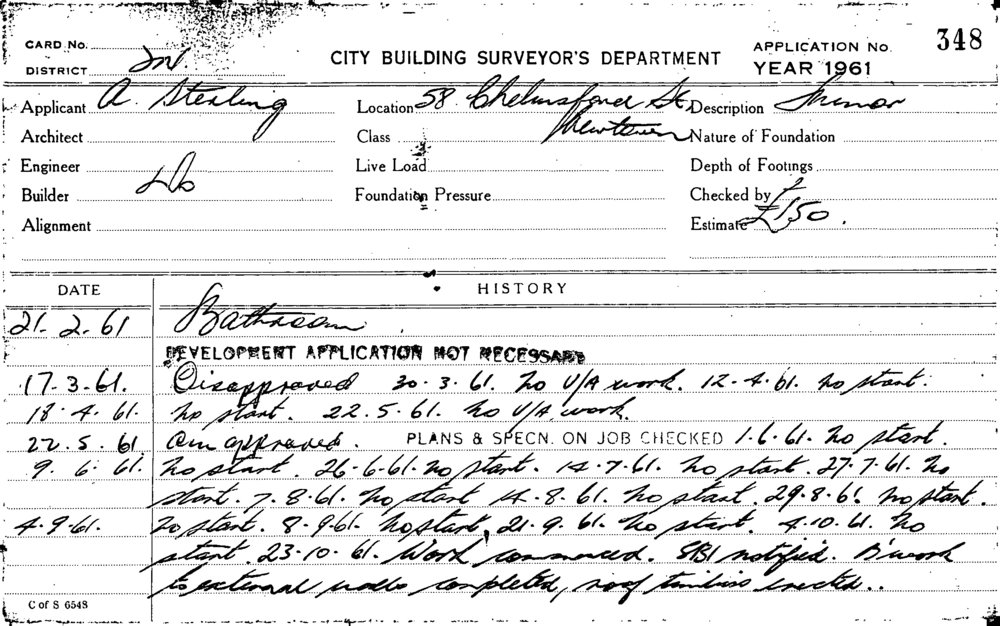 CARD No.
DISTRICT
CITY BUILDING SURVEYOR'S DEPARTMENT
APPLICATION No. 348
YEAR 1961
Applicant A. Sterling
Location 58 Chelmsford St, Newtown
Description Minor
Architect
Class
Nature of Foundation
Engineer
Live Load
Depth of Footings
Builder Do
Foundation Pressure
Checked by
Alignment
Estimate £150.
DATE HISTORY
21.2.61 Bathroom.
DEVELOPMENT APPLICATION NOT NECESSARY
17.3.61. Disapproved 30.3.61. No U/A work. 12.4.61. No start.
18.4.61. No start. 22.5.61. No U/A work.
22.5.61 Am approved. PLANS & SPECN. ON JOB CHECKED 1.6.61. No start.
9.6.61. No start. 26.6.61. No start. 14.7.61. No start. 27.7.61. No
start. 7.8.61. No start 14.8.61. No start. 29.8.61 No start.
4.9.61. No start. 8.9.61. No start. 21.9.61. No start. 4.10.61. No
start. 23.10.61. Work commenced. SBI notified. B'work
to external walls completed, roof timbers erected..
C of S 6548